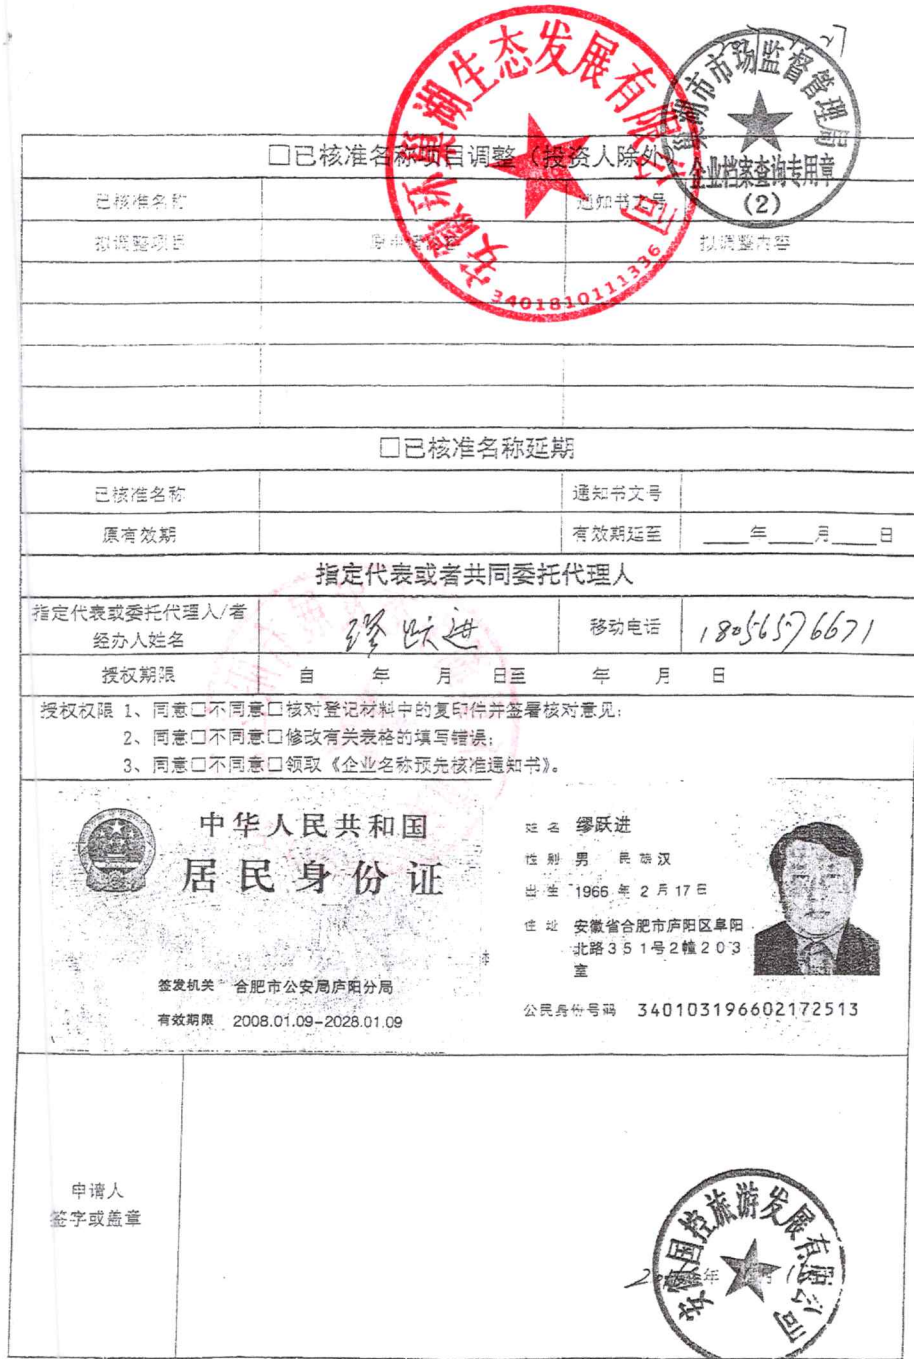 安徽环巢湖生态发展有限公司
3401810111336
巢湖市市场监督管理局
企业档案查询专用章
(2)
□已核准名称项目调整（投资人除外）
已核准名称 通知书文号
拟调整项目 拟调整内容
□已核准名称延期
已核准名称 通知书文号
原有效期 有效期延至 ____年____月____日
指定代表或者共同委托代理人
指定代表或委托代理人/者
经办人姓名 缪跃进 移动电话 18056576671
授权期限 自 年 月 日至 年 月 日
授权权限 1、同意□不同意□核对登记材料中的复印件并签署核对意见；
2、同意□不同意□修改有关表格的填写错误；
3、同意□不同意□领取《企业名称预先核准通知书》。
中华人民共和国
居民身份证
签发机关 合肥市公安局庐阳分局
有效期限 2008.01.09-2028.01.09
姓名 缪跃进
性别 男 民族 汉
出生 1966年2月17日
住址 安徽省合肥市庐阳区阜阳
北路351号2幢203
室
公民身份号码 340103196602172513
申请人
签字或盖章
安徽国控旅游发展有限公司
年